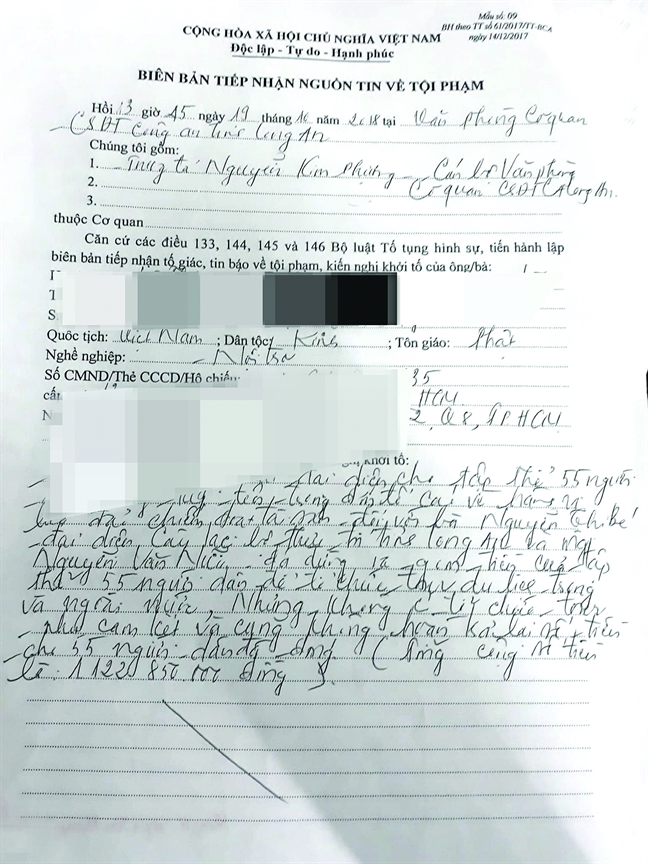 Mẫu số: 09
BH theo TT số 61/2017/TT-BCA
ngày 14/12/2017
CỘNG HÒA XÃ HỘI CHỦ NGHĨA VIỆT NAM
Độc lập - Tự do - Hạnh phúc
BIÊN BẢN TIẾP NHẬN NGUỒN TIN VỀ TỘI PHẠM
Hồi 13 giờ 45 ngày 19 tháng 10 năm 2018 tại Văn phòng Cơ quan
CSĐT Công an tỉnh Long An
Chúng tôi gồm:
1. Trung tá Nguyễn Kim Phụng - Cán bộ Văn phòng
2. Cơ quan CSĐT CA Long An.
3.
thuộc Cơ quan
Căn cứ các điều 133, 144, 145 và 146 Bộ luật Tố tụng hình sự, tiến hành lập
biên bản tiếp nhận tố giác, tin báo về tội phạm, kiến nghị khởi tố của ông/bà:
Quốc tịch: Việt Nam ; Dân tộc: Kinh ; Tôn giáo: Phật
Nghề nghiệp: Nội trợ
Số CMND/Thẻ CCCD/Hộ chiếu 35
HCM
2, Q8, TP.HCM
khởi tố:
đại diện cho tập thể 55 người
trong đơn tố cáo về hành vi
lừa đảo chiếm đoạt tài sản đối với bà Nguyễn Thị Bé
đại diện Câu lạc bộ Long An và
Nguyễn Văn tiền của tập
thể 55 người dân để tổ chức du lịch trong
và ngoài nước, Nhưng không tổ chức tour
như cam kết và cũng không hoàn trả lại số tiền
cho 55 người dân (Tổng cộng số tiền
là: 1.122.850.000 đồng).